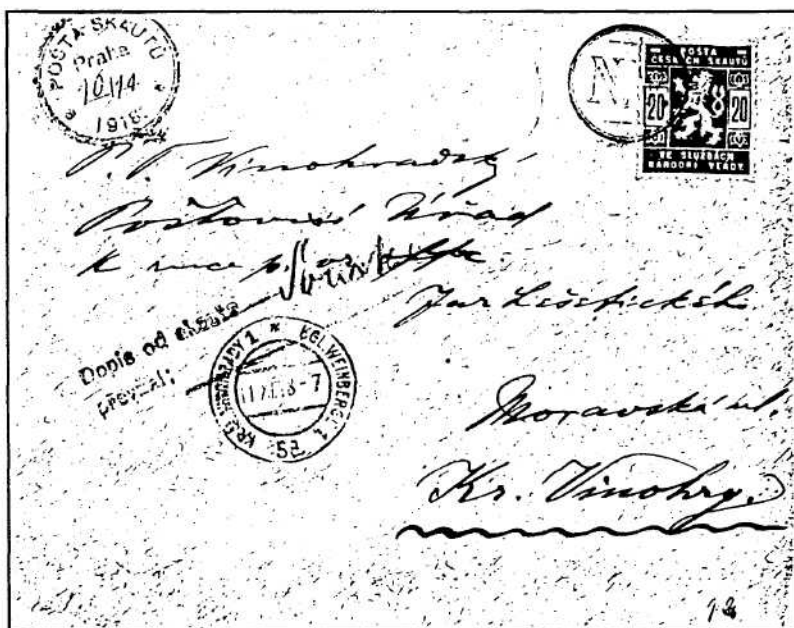 POŠTA SKAUTŮ
Praha
1918
N
POŠTA
ČESKÝCH SKAUTŮ
20 20
VE SLUŽBÁCH
NÁRODNÍ VLÁDY.
Vinohradský
Poštovní Úřad
K ruce p.
Jar Lešetického
Dopis od skauta
převzal:
KRÁL. VINOHRADY 1 * KGL. WEINBERGE 1.
5a
Moravská ul.
Kr. Vinohry.